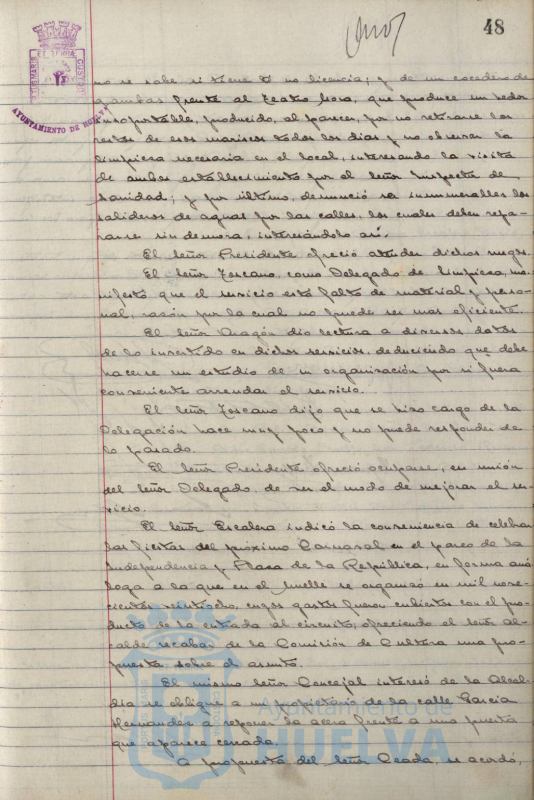 48
AYUNTAMIENTO DE HUELVA
no se sabe si tiene o no licencia; y de un cocedero de
gambas frente al Teatro Mora, que produce un hedor
insoportable, producido, al parecer, por no retirarse los
restos de esos mariscos todos los dias y no observar la
limpieza necesaria en el local, interesando la visita
de ambos establecimientos por el señor Inspector de
Sanidad; y por último, denunció la innumerables los
salideros de aguas por las calles, los cuales deben repa-
rarse sin demora, interesándolo asi.
El señor Presidente ofreció atender dichos ruegos.
El señor Toscano, como Delegado de limpieza, ma-
nifestó que el servicio está falto de material y perso-
nal, razón por la cual no puede ser mas eficiente.
El señor Aragón dio lectura a diversos datos
de lo invertido en dichos servicios, deduciendo que debe
hacerse un estudio de su organización por si fuera
conveniente arrendar el servicio.
El señor Toscano dijo que se hizo cargo de la
Delegación hace muy poco y no puede responder de
lo pasado.
El señor Presidente ofreció ocuparse, en unión
del señor Delegado, de ver el modo de mejorar el ser-
vicio.
El señor Escalera indicó la conveniencia de celebrar
las fiestas del próximo Carnaval en el paseo de la
Independencia y Plaza de la República, en forma aná-
loga a la que en el muelle se organizó en mil nove-
cientos veintiocho, cuyos gastos fueron cubiertos con el pro-
ducto de la entrada al circuito; ofreciendo el señor al-
calde recabar de la Comisión de Cultura una pro-
puesta sobre el asunto.
El mismo señor Concejal interesó de la Alcal-
dia se obligue a un propietario de la calle Garcia
Hernandez a reponer la acera frente a una puerta
que aparece cerrada.
A propuesta del señor Ceada, se acordó,
Ayuntamiento de
HUELVA